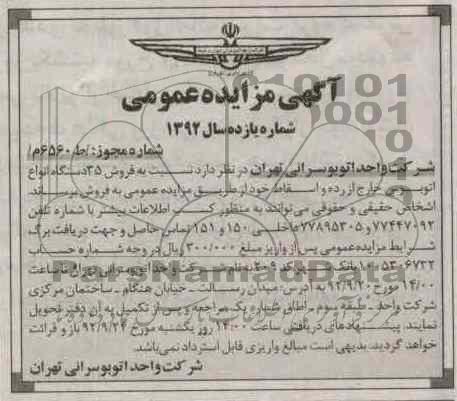 آگهی مزایده عمومی
شماره یازده سال ۱۳۹۲
شماره مجوز: /ط۶۵۶۰م/
شرکت واحد اتوبوسرانی تهران در نظر دارد نسبت به فروش ۳۵ دستگاه انواع
اتوبوس خارج از رده و اسقاط خود از طریق مزایده عمومی به فروش برساند.
اشخاص حقیقی و حقوقی می‌توانند به منظور کسب اطلاعات بیشتر با شماره تلفن
۷۷۴۴۷۰۹۲ و ۷۷۸۹۵۳۰۵ داخلی ۱۵۰ و ۱۵۱ تماس حاصل و جهت دریافت برگ
شرایط مزایده عمومی پس از واریز مبلغ ۳۰۰/۰۰۰ ریال در وجه شماره حساب
بانک کد ۲۰۹ به نام شرکت واحد اتوبوسرانی تهران تا ساعت
۱۴/۰۰ مورخ ۹۲/۹/۲۰ به آدرس: میدان رسالت - خیابان هنگام - ساختمان مرکزی
شرکت واحد - طبقه سوم - اطاق شماره یک مراجعه و پس از تکمیل به آن دفتر تحویل
نمایند. پیشنهادهای دریافتی ساعت ۱۴:۰۰ روز یکشنبه مورخ ۹۲/۹/۲۴ باز و قرائت
خواهد گردید. بدیهی است مبالغ واریزی قابل استرداد نمی‌باشد.
شرکت واحد اتوبوسرانی تهران
ParsNamadData